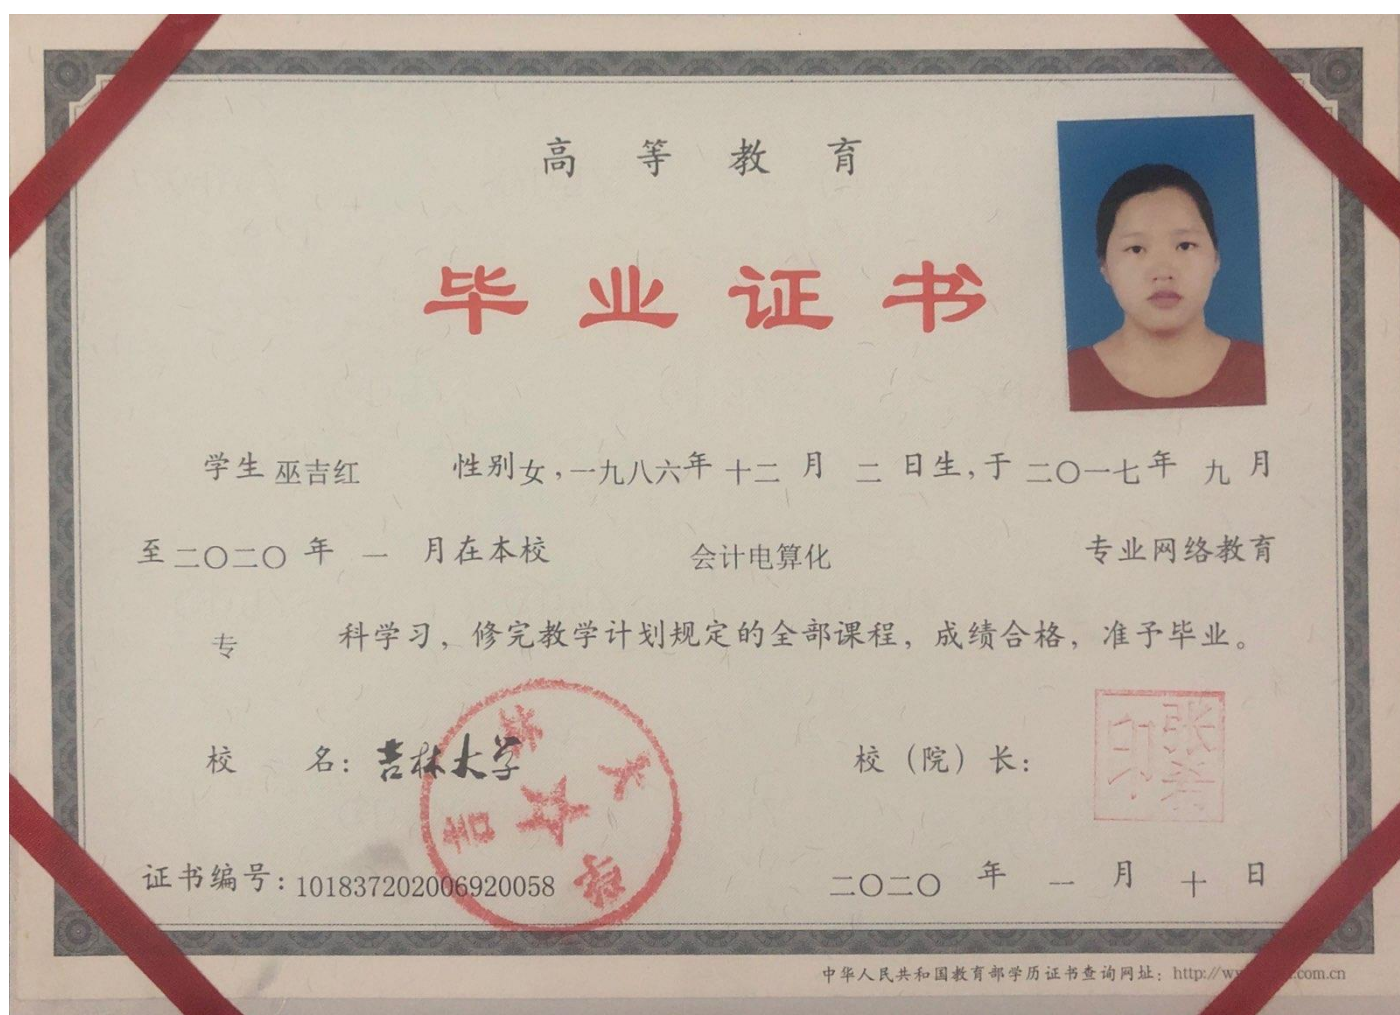 高等教育
毕业证书
学生 巫吉红 性别女,一九八六年 十二 月 二 日生,于 二〇一七年 九 月
至二〇二〇 年 一 月在本校 会计电算化 专业网络教育
专 科学习，修完教学计划规定的全部课程，成绩合格，准予毕业。
校 名：吉林大学 校（院）长：
吉林大学
证书编号:101837202006920058 二〇二〇 年 一 月 十 日
中华人民共和国教育部学历证书查询网址：http://w .com.cn